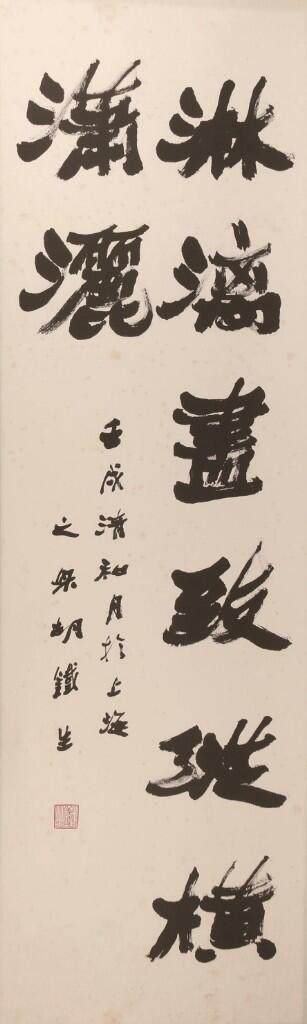 淋漓盡致縱横
瀟灑
壬戌清和月於上海
之罘胡鐵生